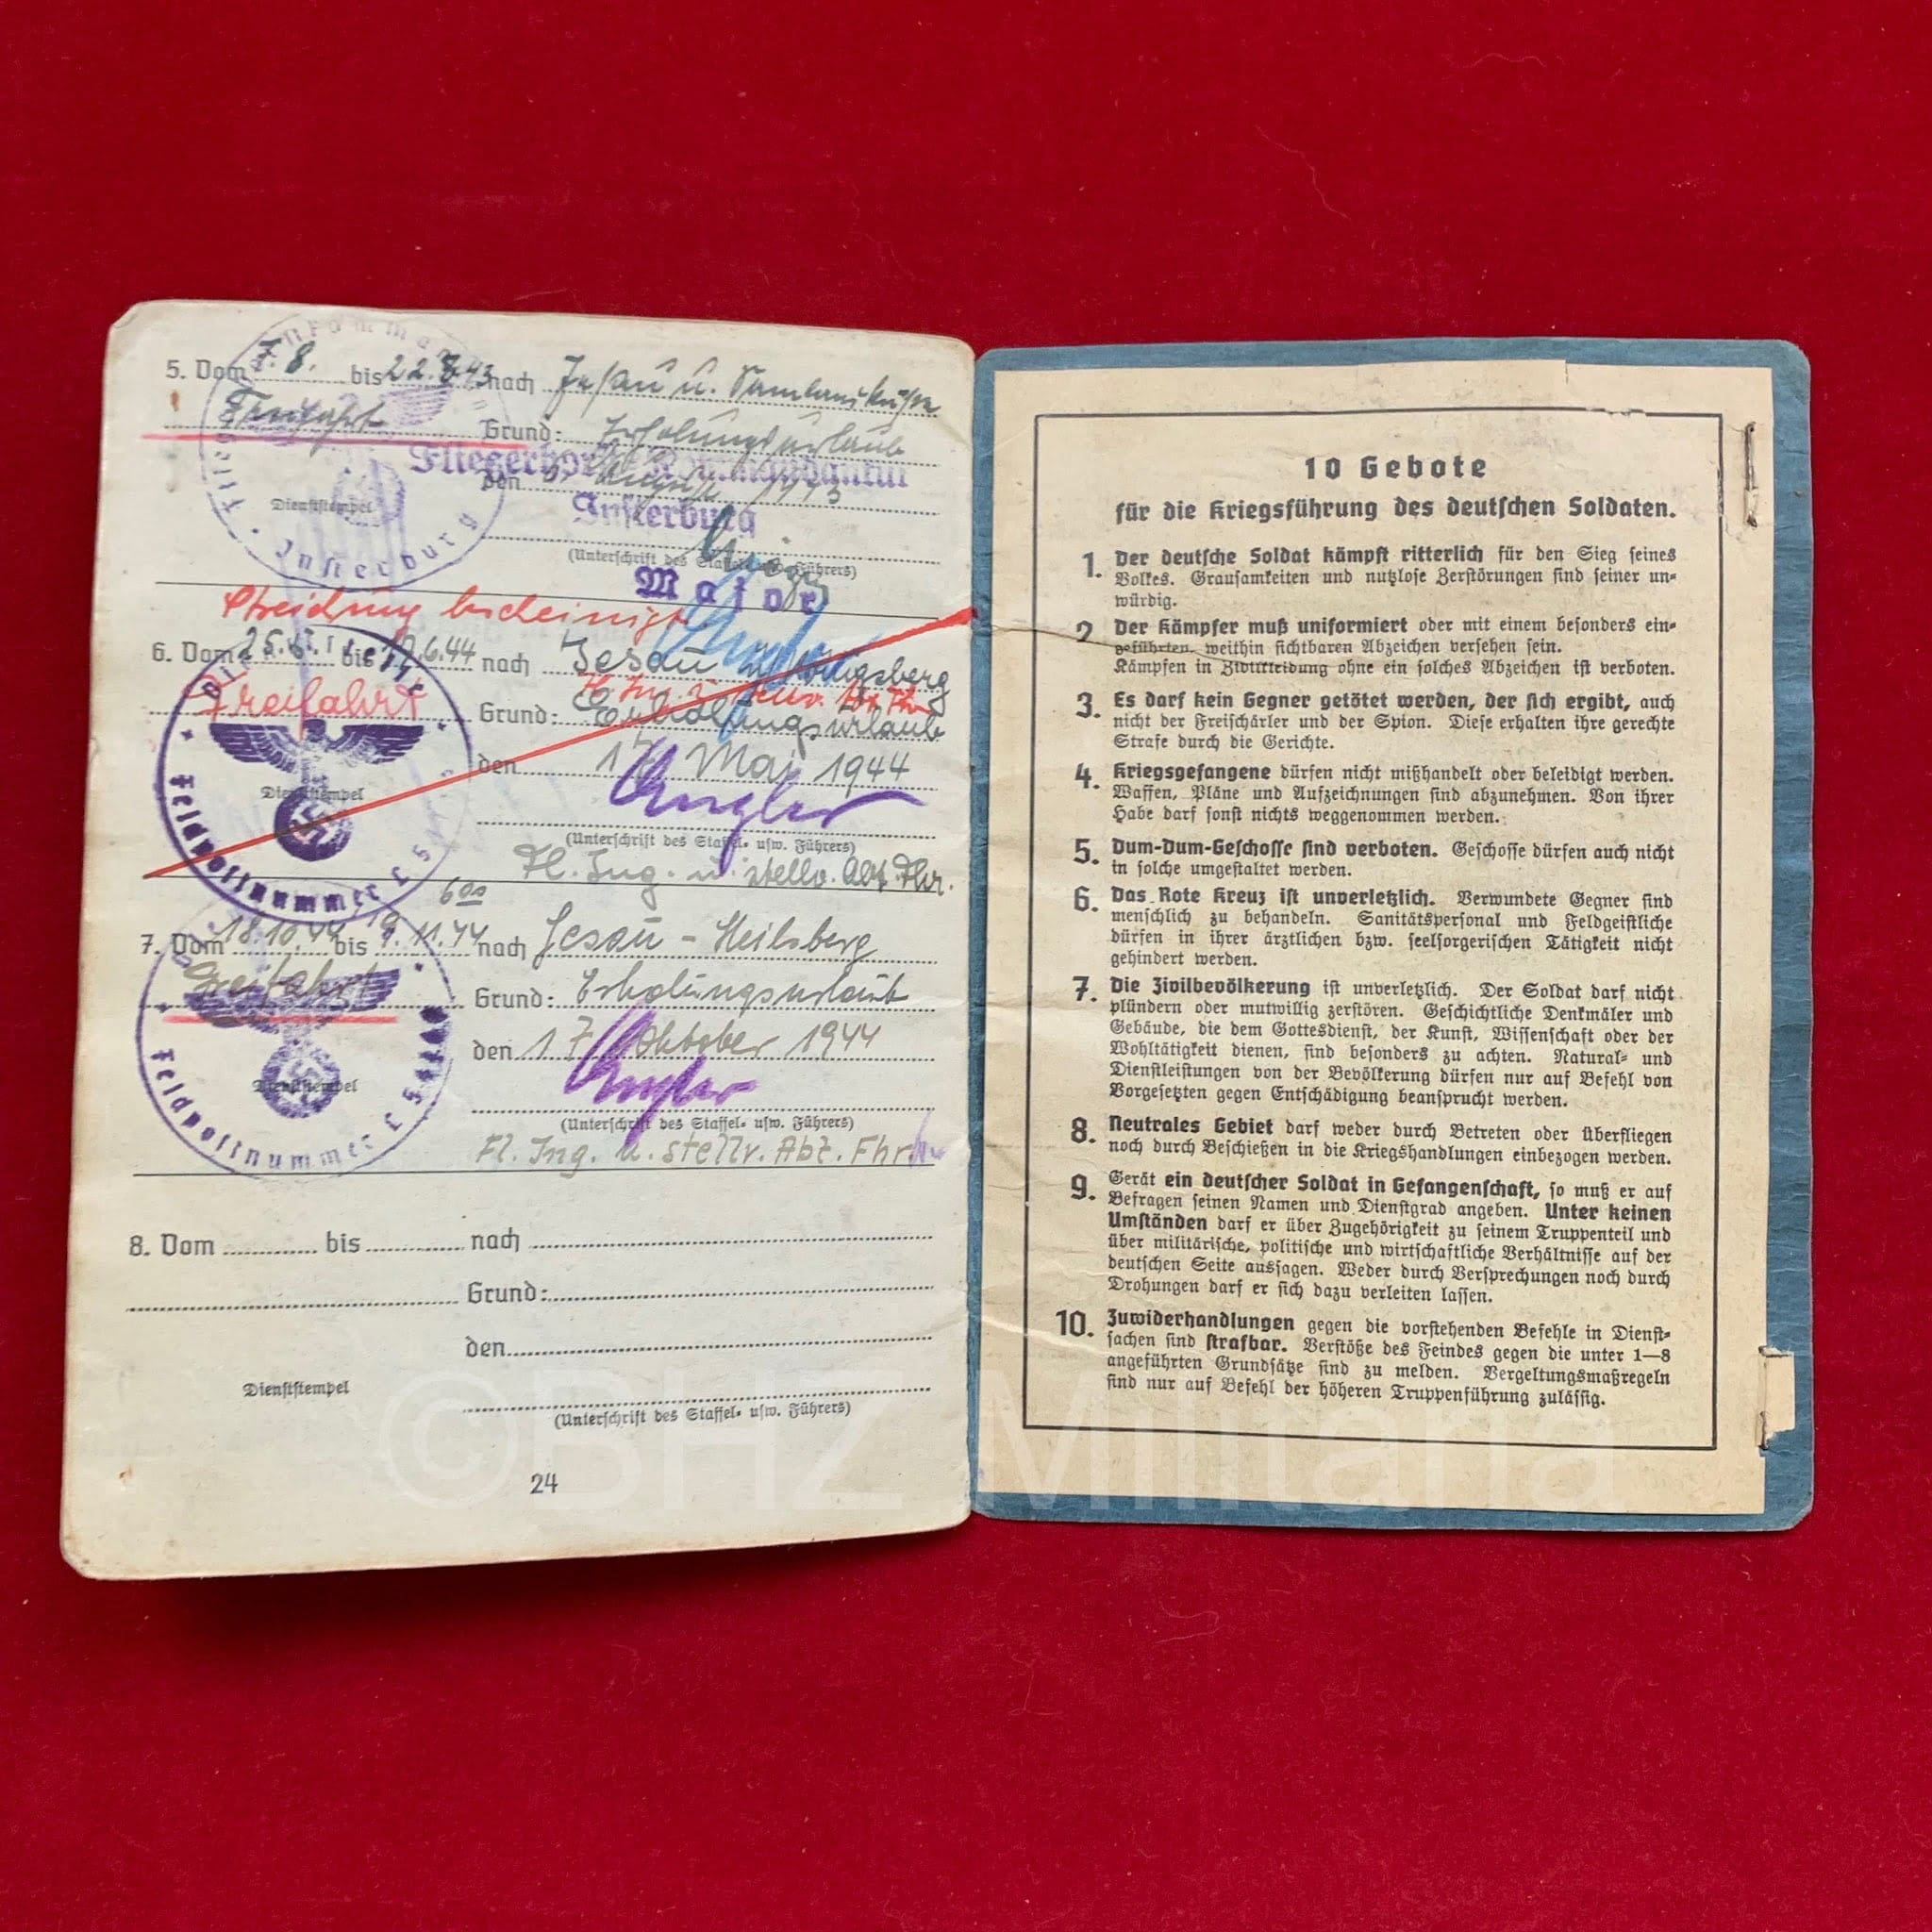 5. Vom 7. 8. bis 22.8.43 nach
Freifahrt
Grund: Erholungsurlaub
Fliegerhorst-Kommandantur
den 1943
Insterburg
Dienststempel
(Unterschrift des Staffel- usw. Führers)
Major
Insterburg
Streichung bescheinigt
6. Vom bis 6.44 nach Jesau Königsberg
Freifahrt
Grund: Erholungsurlaub
den 17. Mai 1944
Dienststempel
(Unterschrift des Staffel- usw. Führers)
Fl. Ing. u. stellv. Abt. Fhr.
Feldpostnummer L
7. Vom 18.10.44 bis 9.11.44 nach Jesau - Heilsberg
Freifahrt
Grund: Erholungsurlaub
den 17. Oktober 1944
Dienststempel
(Unterschrift des Staffel- usw. Führers)
Fl. Ing. u. stellv. Abt. Fhr.
Feldpostnummer L
8. Vom bis nach
Grund:
den
Dienststempel
(Unterschrift des Staffel- usw. Führers)
24
10 Gebote
für die Kriegsführung des deutſchen Soldaten.
1. Der deutſche Soldat kämpft ritterlich für den Sieg ſeines
Volkes. Grauſamkeiten und nutzloſe Zerſtörungen ſind ſeiner un-
würdig.
2. Der Kämpfer muß uniformiert oder mit einem beſonders ein-
geführten, weithin ſichtbaren Abzeichen verſehen ſein.
Kämpfen in Zivilkleidung ohne ein ſolches Abzeichen iſt verboten.
3. Es darf kein Gegner getötet werden, der ſich ergibt, auch
nicht der Freiſchärler und der Spion. Dieſe erhalten ihre gerechte
Strafe durch die Gerichte.
4. Kriegsgefangene dürfen nicht mißhandelt oder beleidigt werden.
Waffen, Pläne und Aufzeichnungen ſind abzunehmen. Von ihrer
Habe darf ſonſt nichts weggenommen werden.
5. Dum-Dum-Geſchoſſe ſind verboten. Geſchoſſe dürfen auch nicht
in ſolche umgeſtaltet werden.
6. Das Rote Kreuz iſt unverletzlich. Verwundete Gegner ſind
menſchlich zu behandeln. Sanitätsperſonal und Feldgeiſtliche
dürfen in ihrer ärztlichen bzw. ſeelſorgeriſchen Tätigkeit nicht
gehindert werden.
7. Die Zivilbevölkerung iſt unverletzlich. Der Soldat darf nicht
plündern oder mutwillig zerſtören. Geſchichtliche Denkmäler und
Gebäude, die dem Gottesdienſt, der Kunſt, Wiſſenſchaft oder der
Wohltätigkeit dienen, ſind beſonders zu achten. Natural- und
Dienſtleiſtungen von der Bevölkerung dürfen nur auf Befehl von
Vorgeſetzten gegen Entſchädigung beanſprucht werden.
8. Neutrales Gebiet darf weder durch Betreten oder Überfliegen
noch durch Beſchießen in die Kriegshandlungen einbezogen werden.
9. Gerät ein deutſcher Soldat in Gefangenſchaft, ſo muß er auf
Befragen ſeinen Namen und Dienſtgrad angeben. Unter keinen
Umſtänden darf er über Zugehörigkeit zu ſeinem Truppenteil und
über militäriſche, politiſche und wirtſchaftliche Verhältniſſe auf der
deutſchen Seite ausſagen. Weder durch Verſprechungen noch durch
Drohungen darf er ſich dazu verleiten laſſen.
10. Zuwiderhandlungen gegen die vorſtehenden Befehle in Dienſt-
ſachen ſind ſtrafbar. Verſtöße des Feindes gegen die unter 1—8
angeführten Grundſätze ſind zu melden. Vergeltungsmaßregeln
ſind nur auf Befehl der höheren Truppenführung zuläſſig.
©BHZ Militaria